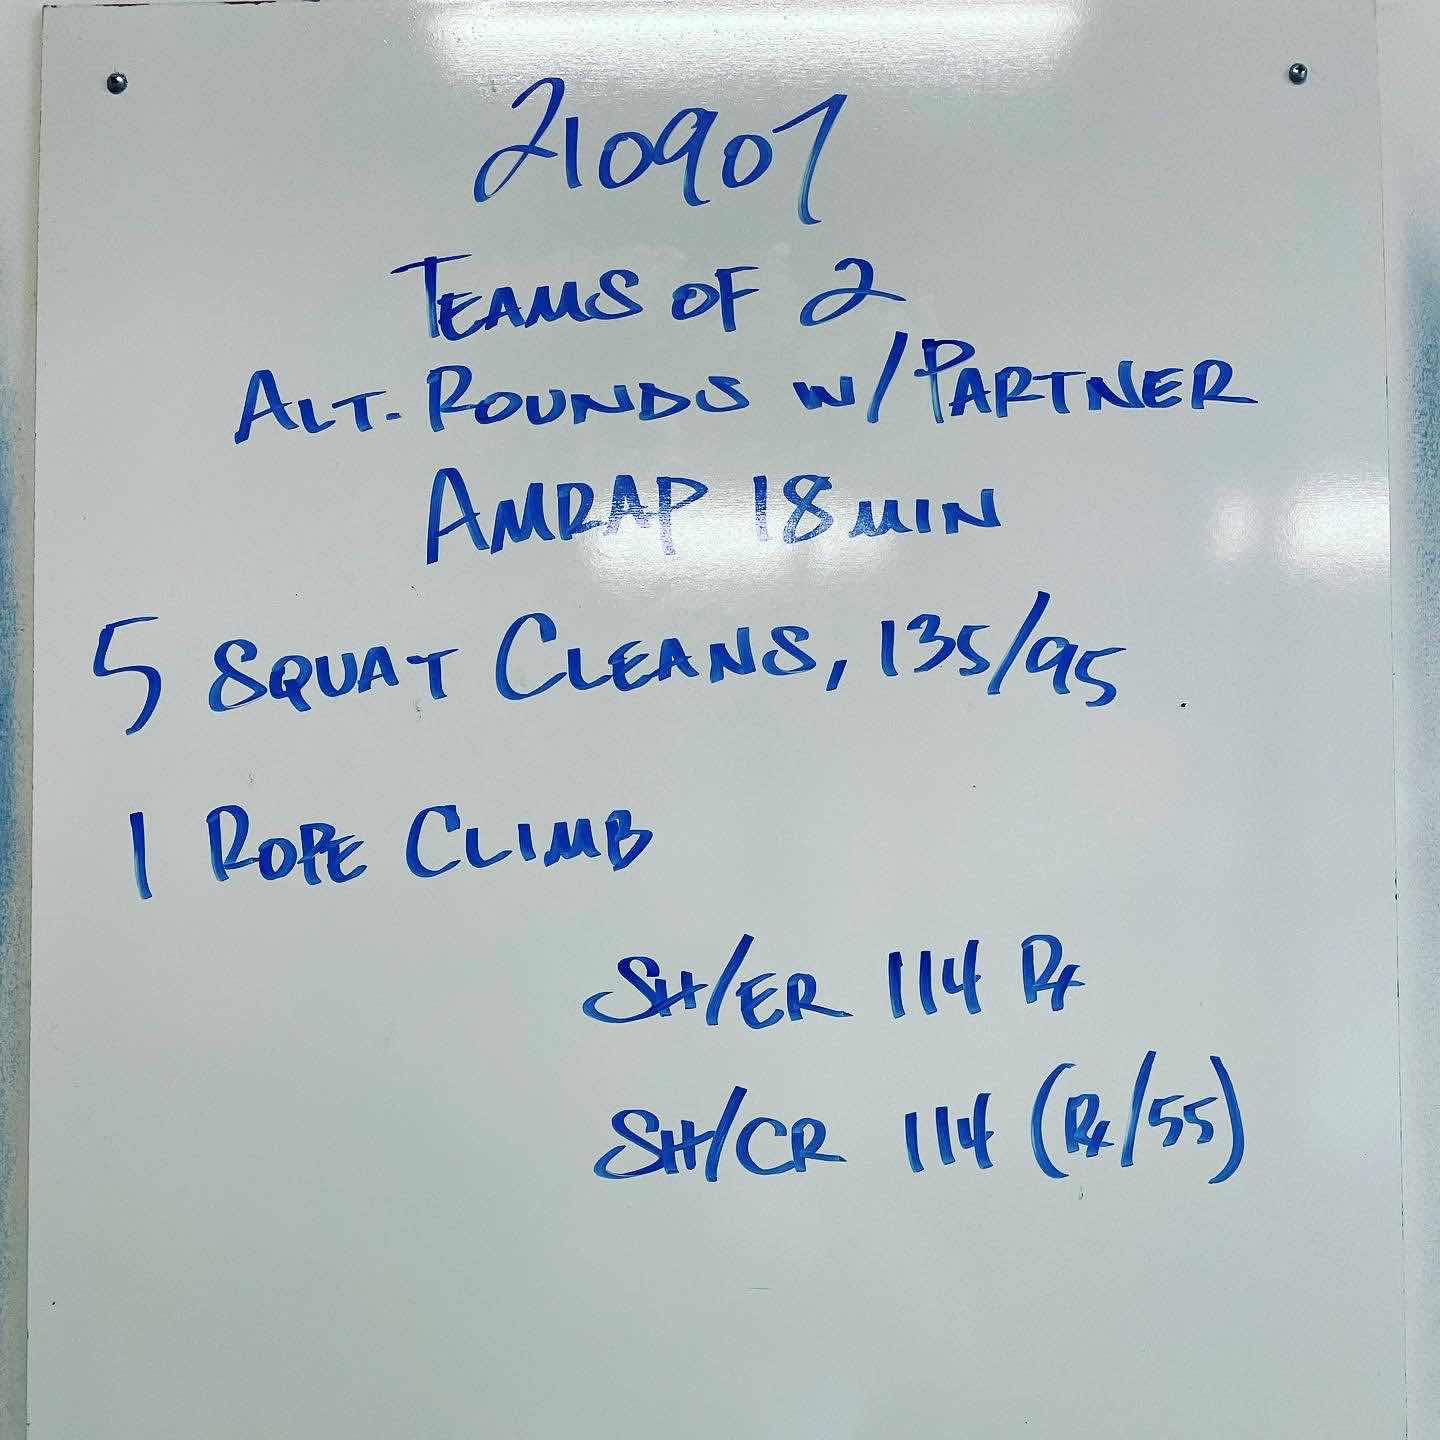 210907
TEAMS OF 2
ALT. ROUNDS W/PARTNER
AMRAP 18 MIN
5 SQUAT CLEANS, 135/95
1 ROPE CLIMB
SH/ER 114 Rx
SH/CR 114 (Rx/55)